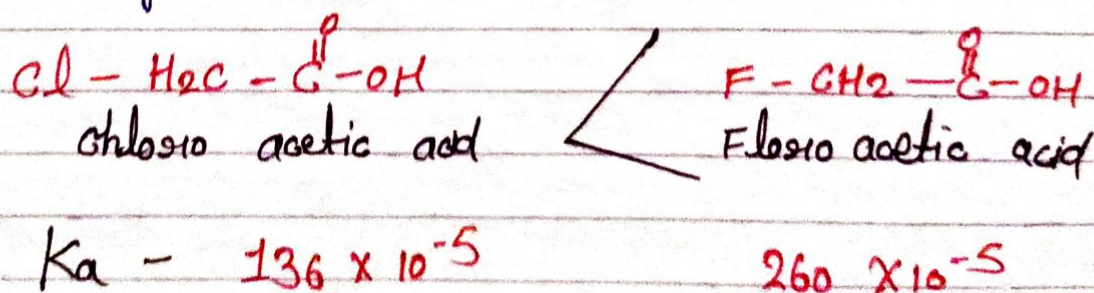 O O
Cl - H2C - C - OH < F - CH2 - C - OH
chloro acetic acid Floro acetic acid
Ka - 136 x 10-5 260 x 10-5